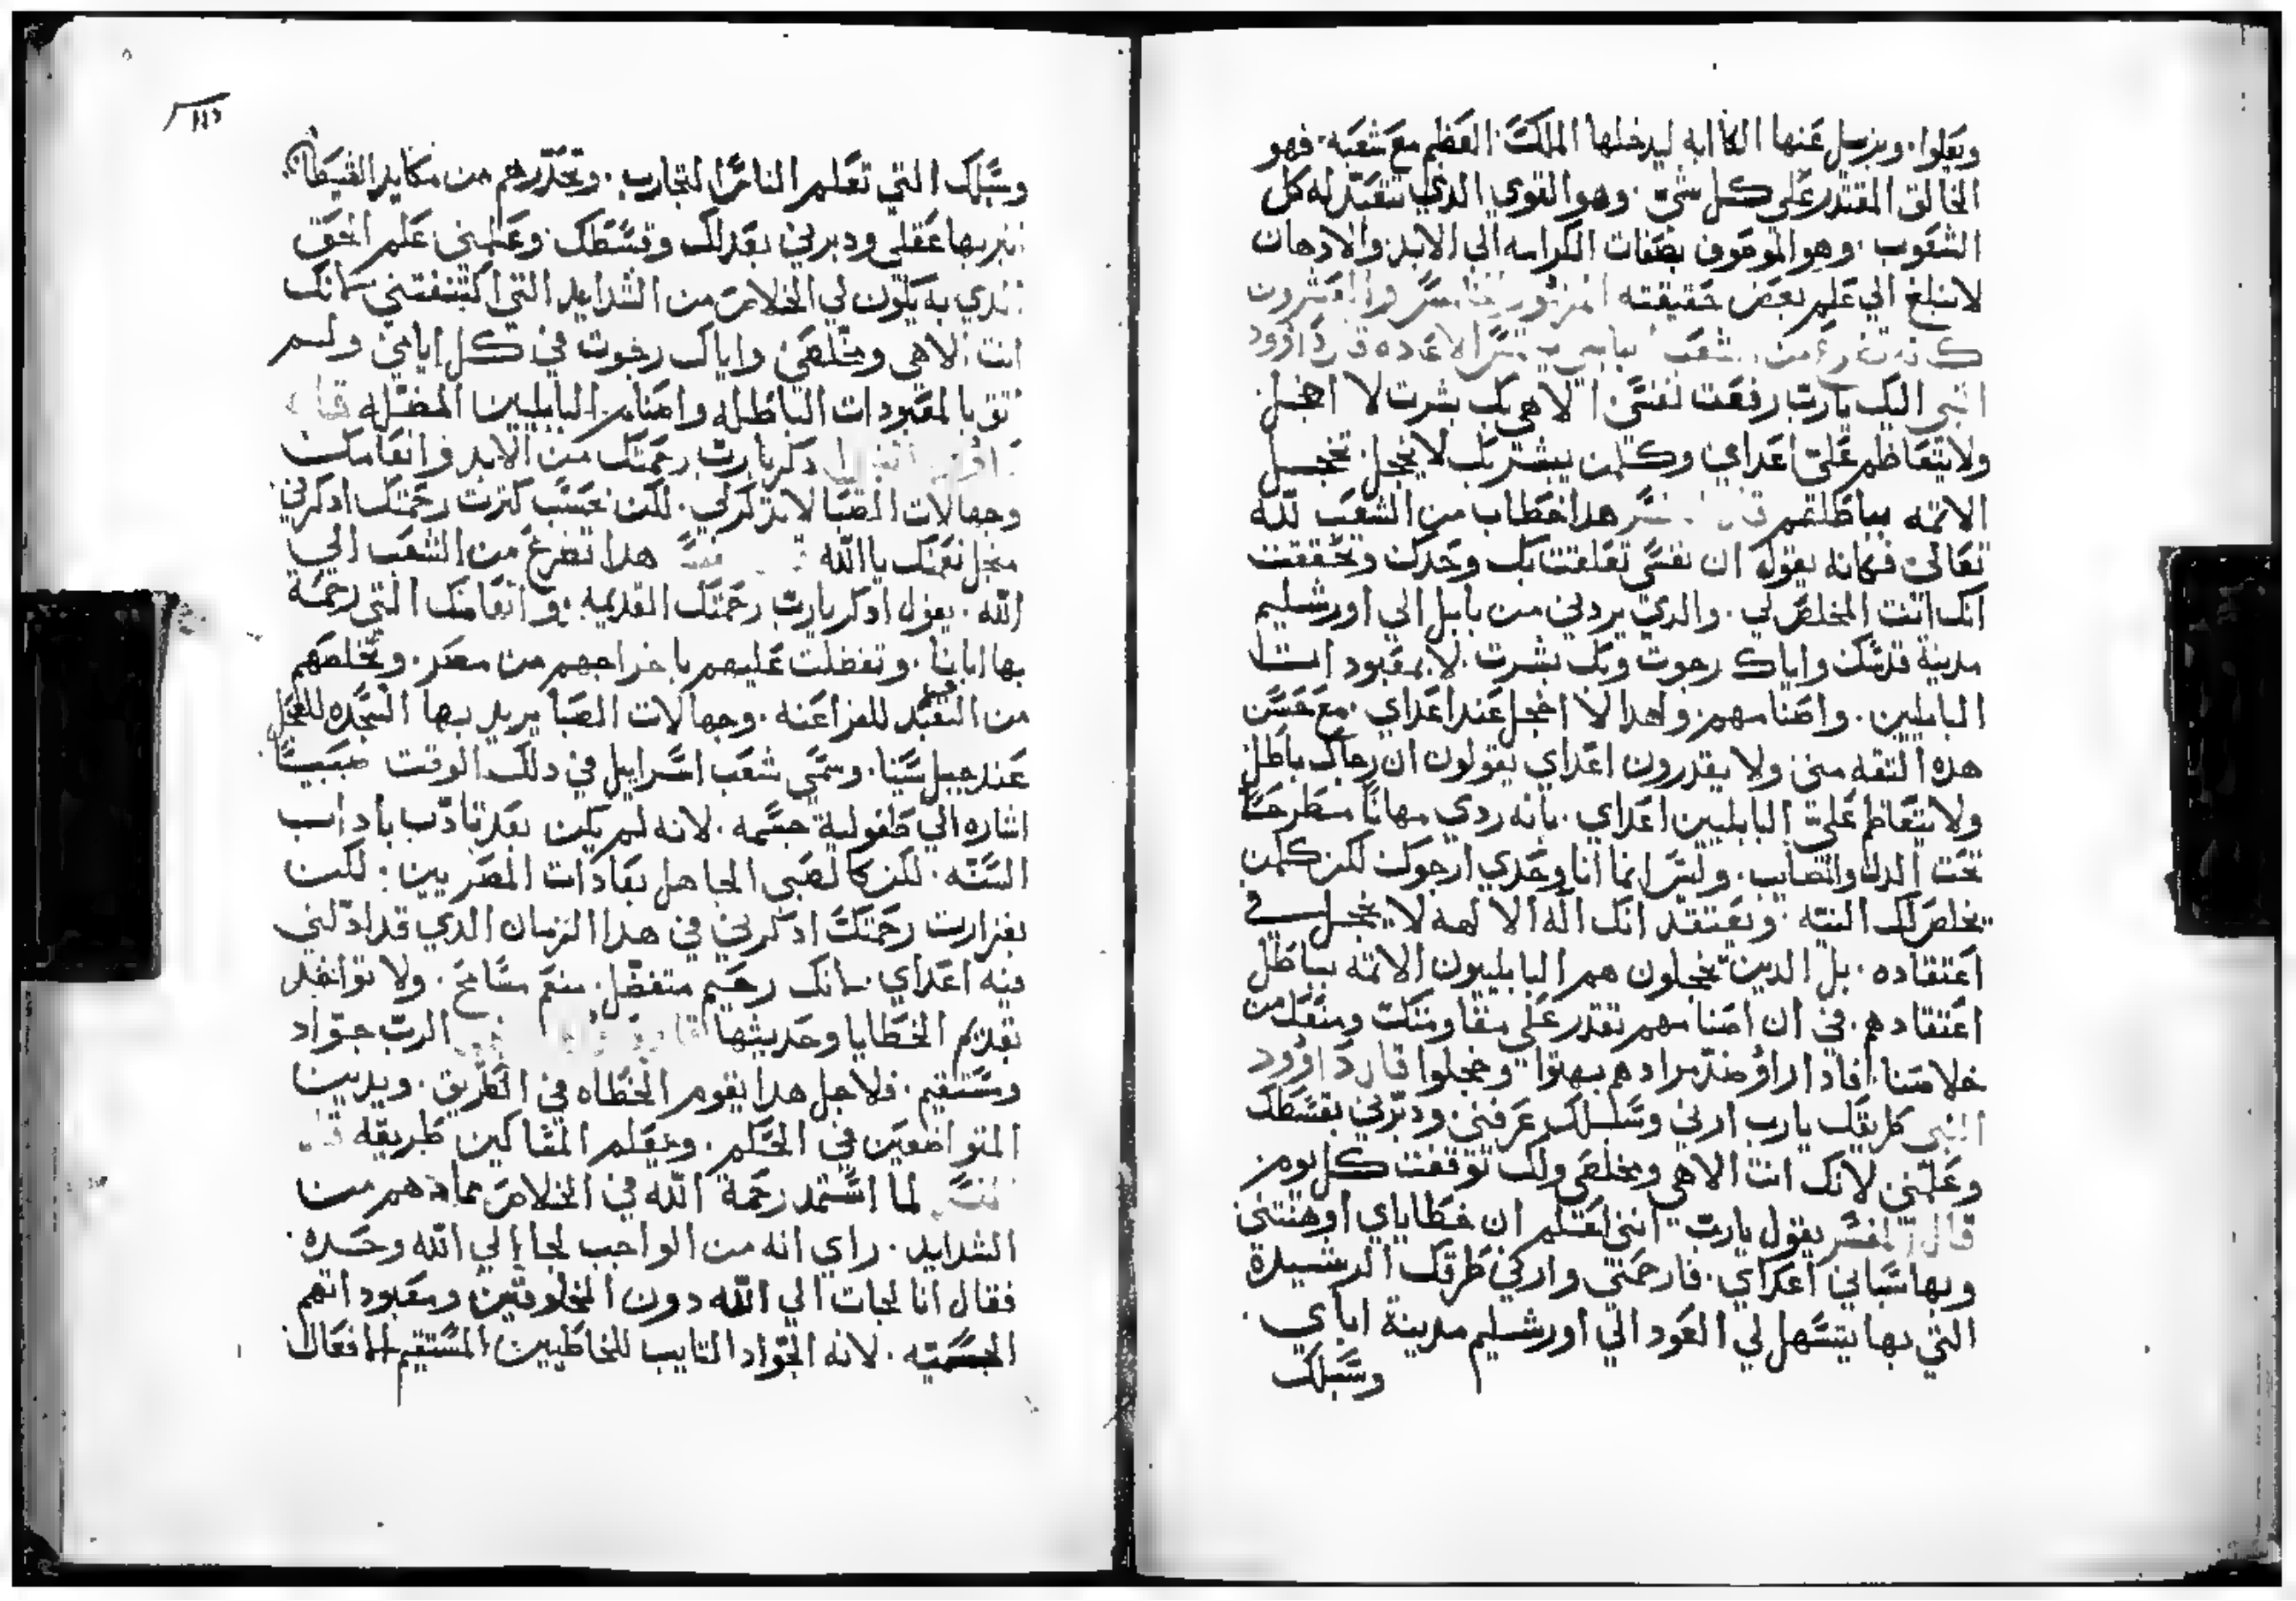 وتعلوا. ويزسل عنها الكاابه ليدخلها الملك العظيم مع شعبه. فهو
الخالق المقتدر على كل شي. وهو القوي الذي تتعبد له كل
الشعوب. وهو الموصوف بصفات الكرامه الي الابد والادهان
لا تبلغ الي علم بعض حقيقته المزمور الخامس والعشرون
من شعب قال داوود
النبي اليك يارب رفعت نفسي الاهي بك بشرت لا اخجل
ولا يتعاظم علي اعداي وكلمن يبشر بك لا يخجل. تخجل
الاتمه بباطلهم قال المفسر هدا خطاب من الشعب لله
تعالي فكانه يقول ان نفسي تعلقت بك وحدك وتحققت
انك انت المخلص لي. والدي يردني من بابل الي اورشليم
مدينة قدسك واياك رجوت وبك بشرت. لا بمعبودات
البابليين. واصنامهم. ولهدا لا اخجل عند اعداي. مع حسن
هده التقه مني ولا يقدرون اعداي يقولون ان رجاك باطل
ولا يتعاظم علي البابليين اعداي. بانه ردي مهانا منطرحا
تحت الدل والمصايب. وليس انما انا وحدي ارجوك لكن كلمن
يخلص لك النيه. ويعتقد انك اله الالهه لا يخجل في
اعتقاده. بل الدين يخجلون هم البابليون الاتمه بباطل
اعتقادهم. في ان اصنامهم تقدر علي مقاومتك ومنعك من
خلاصنا. فادا راوا ضد مرادهم بهتوا وخجلوا قال داوود
النبي طريقك يارب ارني وسبلك عرفني. ودبرني بقسطك
وعلمني لانك انت الاهي ومخلصي ولك توقعت كل يوم
قال المفسر يقول يارب انني اعلم ان خطاياي اوهنتني
وبها سباني اعداي. فارحمني وارني طرقك الرشيدة
التي بها يتسهل لي العود الي اورشليم مدينة اباي.
وسبلك
وسبلك التي تعلم الناس التجارب. وتحدرهم من مكايد الشيطان
انير بها عقلي ودبرني بعدلك وقسطك. وعلمني علم الحق
الدي به يكون لي الخلاص من الشدايد التي اكتنفتني لانك
انت الاهي ومخلصي واياك رجوت في كل ايامي ولم
اتق بالمعبودات الباطله واصنام البابليين المضله قال
داوود النبي ادكر يارب رحمتك من الابد وانعامك
وجهالات الصبا لا تدكر لي. لكن بحسب كترت رحمتك ادكرني
من اجل نعمتك يا الله قال المفسر هدا تضرع من الشعب الي
الله. يقول ادكر يارب رحمتك القديمه. وانعامك التي رحمة
بها ابانا. وتفضلت عليهم باخراجهم من مصر. وتخلصهم
من التعبد للفراعنه. وجهالات الصبا يريد بها السجده للعجل
عند جبل سينا. وسمي شعب اسراييل في دلك الوقت صبيا
اشاره الي طفولية جسمه. لانه لم يكن بعد تادب باداب
السنه. لكن كالصبي الجاهل بعادات المصريين: لكن
بغزارت رحمتك ادكرني في هدا الزمان الدي قد ادلني
فيه اعداي. لانك رحيم متفضل. منعم مسامح. ولا تواخد
بقديم الخطايا وحديثها قال داوود النبي الرب جواد
ومستقيم. فلاجل هدا يقوم الخطاه في الطريق. ويدين
المتواضعين في الحكم. ويعلم المساكين طريقه قال
المفسر لما استمد رحمة الله في الخلاص مما دهم من
الشدايد. راي انه من الواجب لجا الي الله وحده.
فقال انا لجات الي الله دون المخلوقين ومعبوداتهم
الجسميه. لانه الجواد التايب للخاطيين المستقيم الافعال